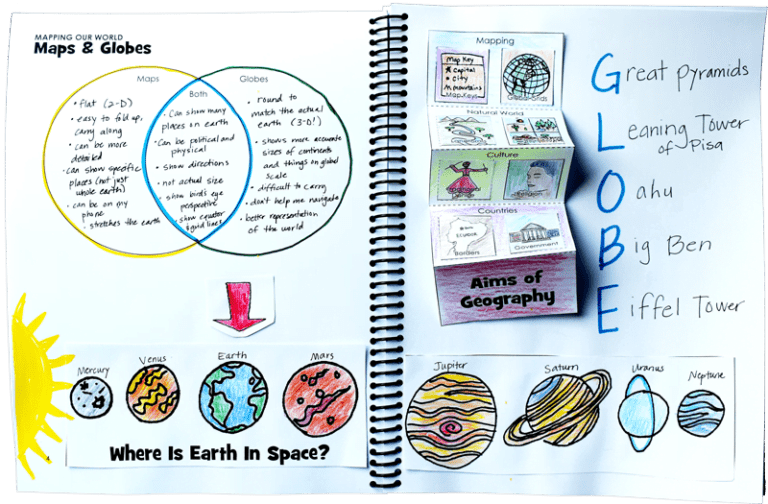 MAPPING OUR WORLD
Maps & Globes
Maps
• flat (2-D)
• easy to fold up,
carry along
• can be more
detailed
• can show specific
places (not just
whole earth)
• can be on my
phone
• stretches the earth
Both
• Can show many
places on earth
• Can be political and
physical
• show directions
• not actual size
• show bird's eye
perspective
• show equator
& grid lines
Globes
• round to
match the actual
earth (3-D!)
• shows more accurate
sizes of continents
and things on global
scale
• difficult to carry
• don't help me navigate
• better representation
of the world
Mercury
Venus
Earth
Mars
Where Is Earth In Space?
4
Mapping
Map Key
Capital
• City
Mountains
Map Keys
Natural World
Culture
Countries
ECUADOR
Borders
Government
Aims of
Geography
Great pyramids
Leaning Tower
of Pisa
Oahu
Big Ben
Eiffel Tower
Jupiter
Saturn
Uranus
Neptune